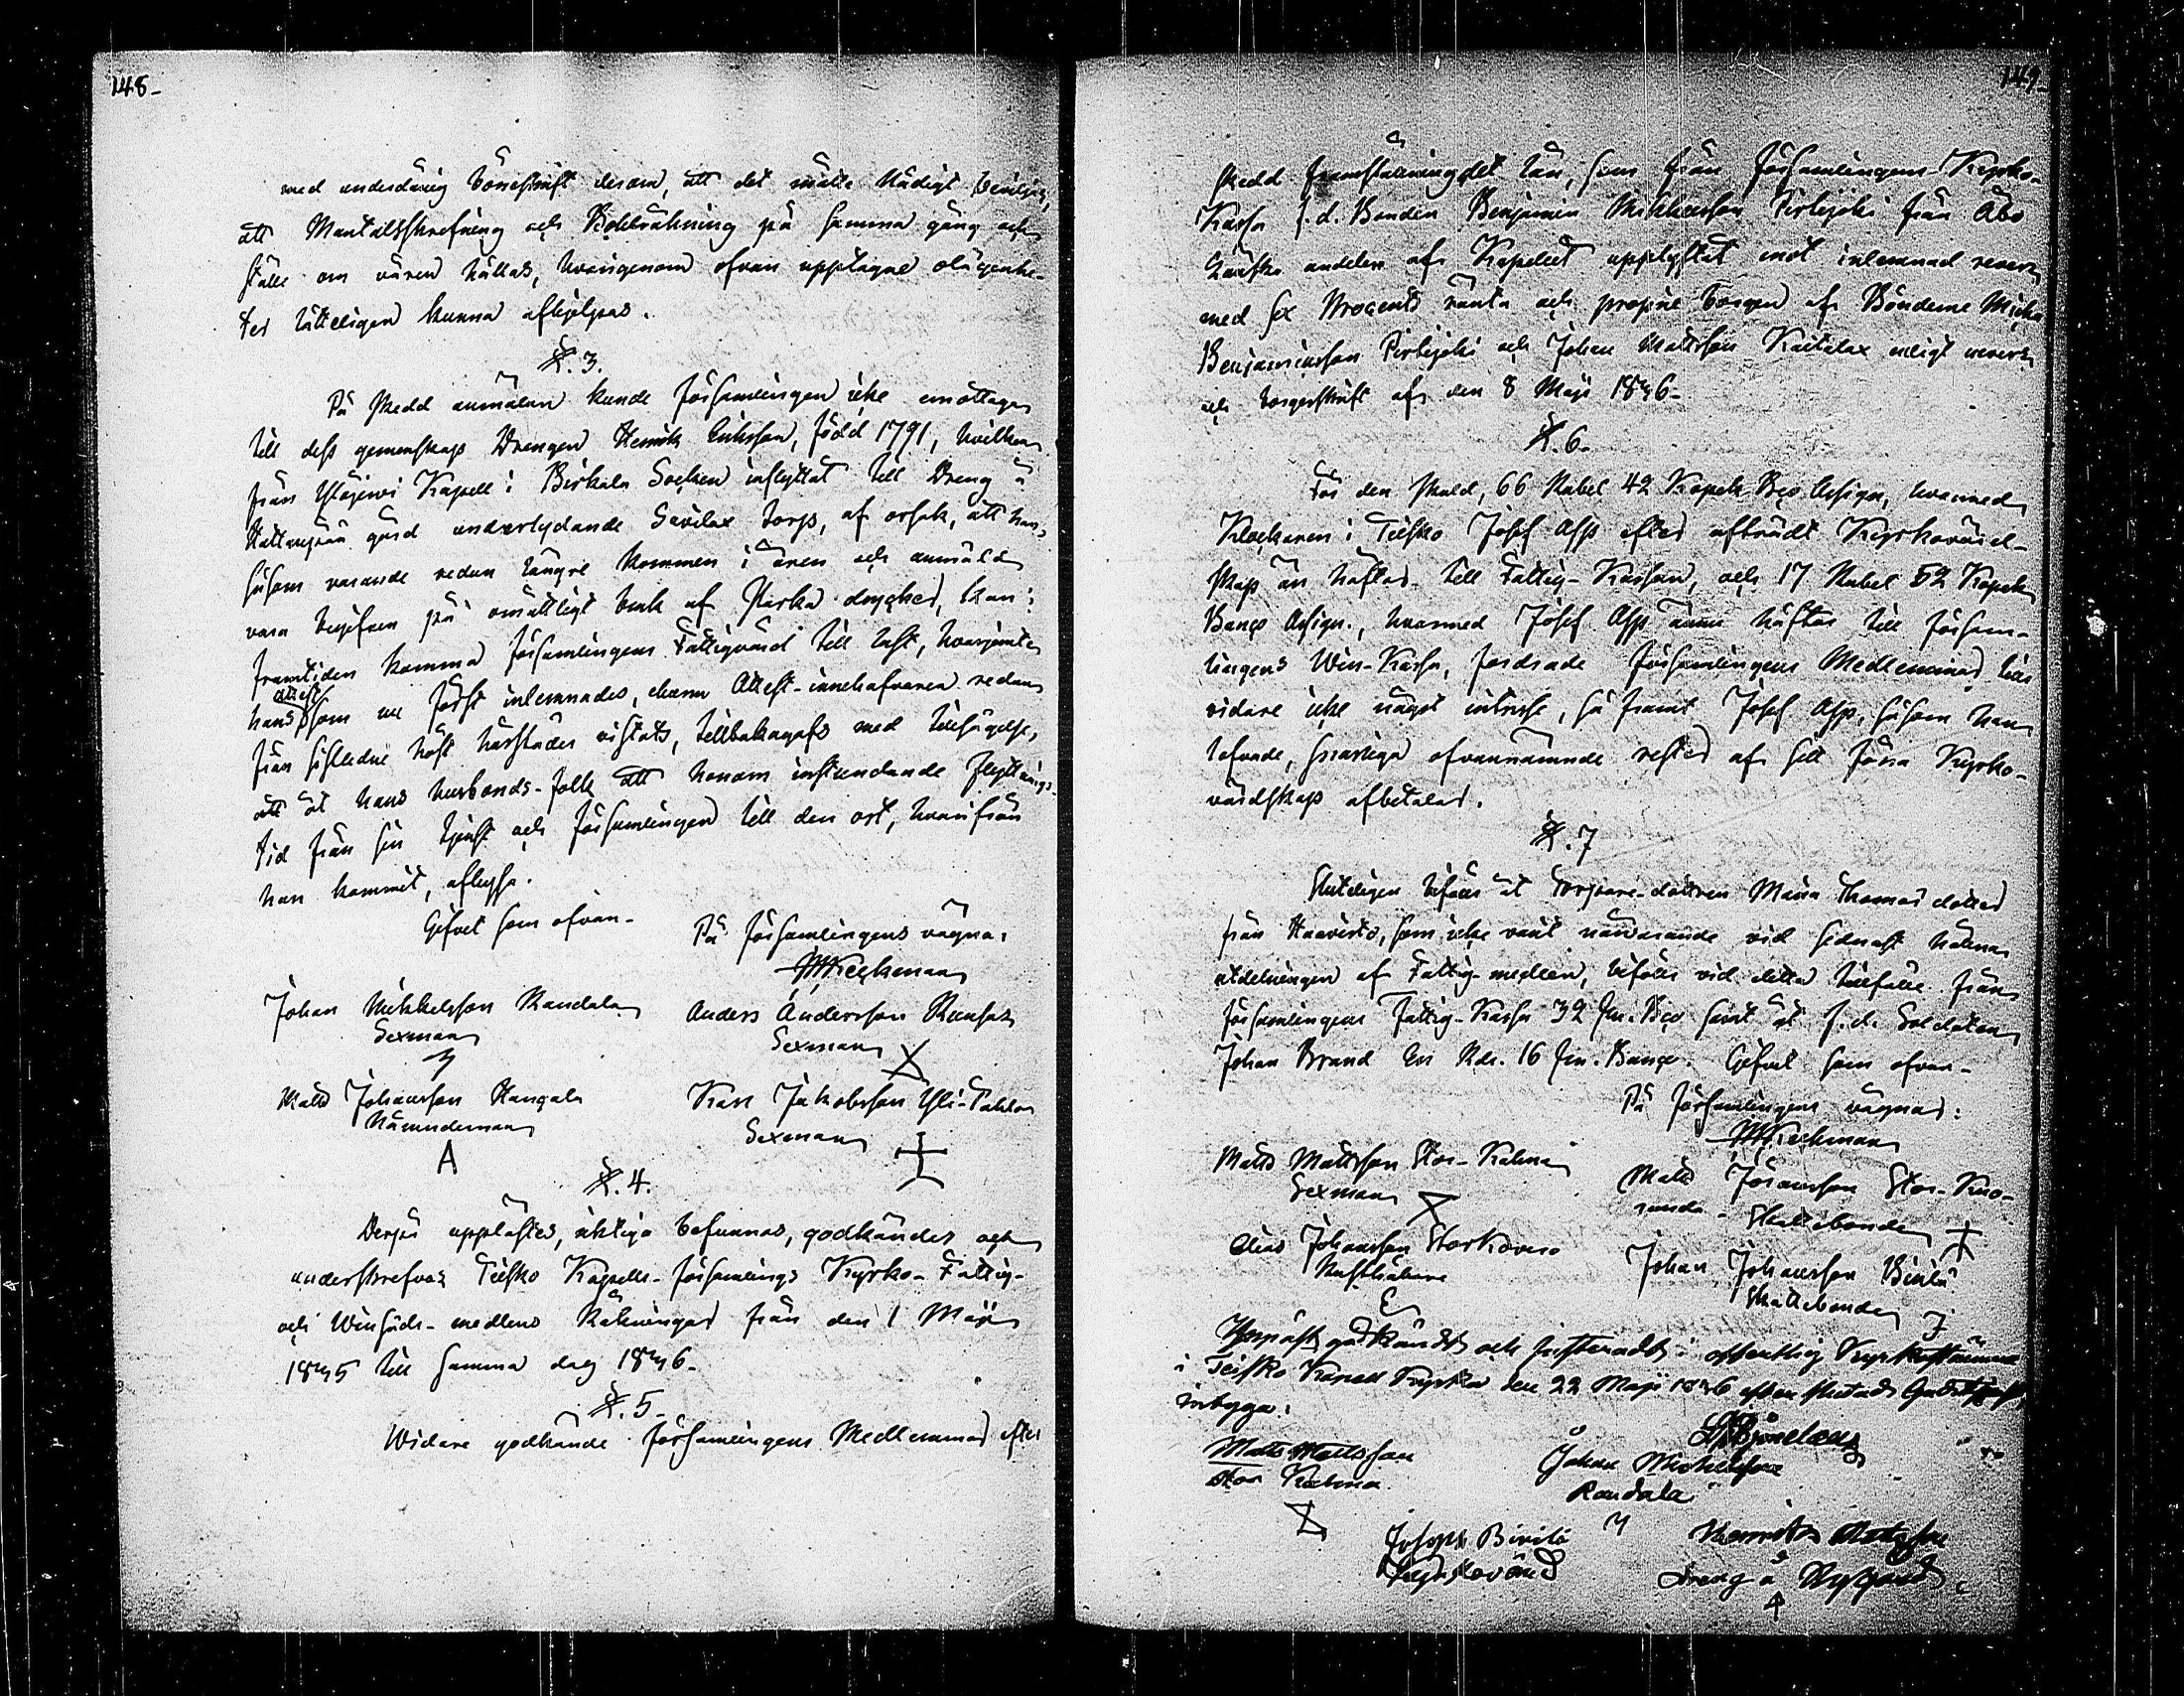 148-
med underdånig böneskrift derom, att det måtte Nådigt beviljas,
att Mantalsskrifning och Bokräkning på samma gång och
ställe om våren hållas, hvarigenom ofvan upptagne olägenhe-
ter lätteligen kunna afhjelpas.
§. 3.
På skedd anmälan kunde Församlingen icke emottaga
till dess gemenskap Drengen Henrik Eriksson, född 1791, hvilken
från Ylöjervi Kapell i Birkala Socken inflyttat till Dreng å
gård underlydande Savilax torp, af orsak, att han,
såsom varande redan längre kommen i åren och anmäld
vara begifven på omåttligt bruk af starka drycker, kan i
framtiden komma Församlingens Fattigvård till last, hvarjemte
attest
hans som nu först inlemnades, ehuru Attest-innehafvaren redan
från sistledne höst härstädes vistats, tillbakagafs med tillsägelse,
att åt hans husbonds-folk att honom instundande flyttnings-
tid från sin tjenst och Församlingen till den ort, hvarifrån
han kommit, aflysa.
Gifvet som ofvan-
På Församlingens vägnar:
Johan Mikkelsson Randala
Sexman
Anders Andersson
Sexman
Matts Johansson Kangala
Nämndeman
A
Karl Jakobsson Yli-
Sexman
§. 4.
Derpå upplästes, riktiga befunnos, godkändes och
underskrefvos Teisko Kapells-Församlings Kyrko- Fattig-
och Winsäds-medlens Räkningar från den 1 Maji
1845 till samma dag 1846-
§. 5-
Widare godkände Församlingens Medlemmar efter
149-
skedd framställning det lån, som från Församlingens Kyrko-
Kassa f.d. Bonden Benjamin Mikkelsson Perkijoki från Åbo
Länska andelen af Kapellet upplyftat mot inlemnad revers
med sex Procents ränta och proprie borgen af Bönderne Micke
Benjaminsson Perkijoki och Johan Mattsson Kaitalax enligt revers
och borgesskrift af den 8 Maji 1846-
§. 6-
För den skuld, 66 Rubel 42 Kopek Bco Assign, hvarmed
Klockaren i Teisko Josef Asp efter afträdt Kyrkovärd-
skap än häftar till Fattig-Kassan, och 17 Rubel 52 Kopek
Banco Assign., hvarmed Josef Asp ännu häftar till Försam-
lingens Win-Kassa, fordrade Församlingens Medlemmar tills
vidare icke något intresse, så framt Josef Asp, såsom han
lofvade, snarliga ofvannämnde rester af sitt förra Kyrko-
värdskap afbetalar.
§. 7
Slutligen bifölls åt Torpare-dottren Maria Thomas dotter
från Haavisto, som icke varit närvarande vid sednast hållna
utdelningen af Fattig-medlen, bifölls vid detta tillfälle från
Församlingens Fattig-Kassa 32 sk. Bco samt åt f.d. Soldaten
Johan Brand En Rdr. 16 sk. Banco. Gifvet som ofvan-
På Församlingens vägnar:
Matts Mattsson Stor-Kulma
Sexman
Matts Johansson Stor-Kuo-
randa- Skattebonde
Elias Johansson Storkovero
Rusthållare
Johan Johansson Birilä
Skattebonde
godkändt och justeradt i offentlig Kyrkostämma
i Teisko Kapell Kyrka den 22 Maji 1846 efter slutad Gudstjenst,
intyga:
Matts Mattsson
Stor Kulma
Johan Mickelsson
Randala
Joseph Birilä
Kyrkovärd
Dreng å Nygård